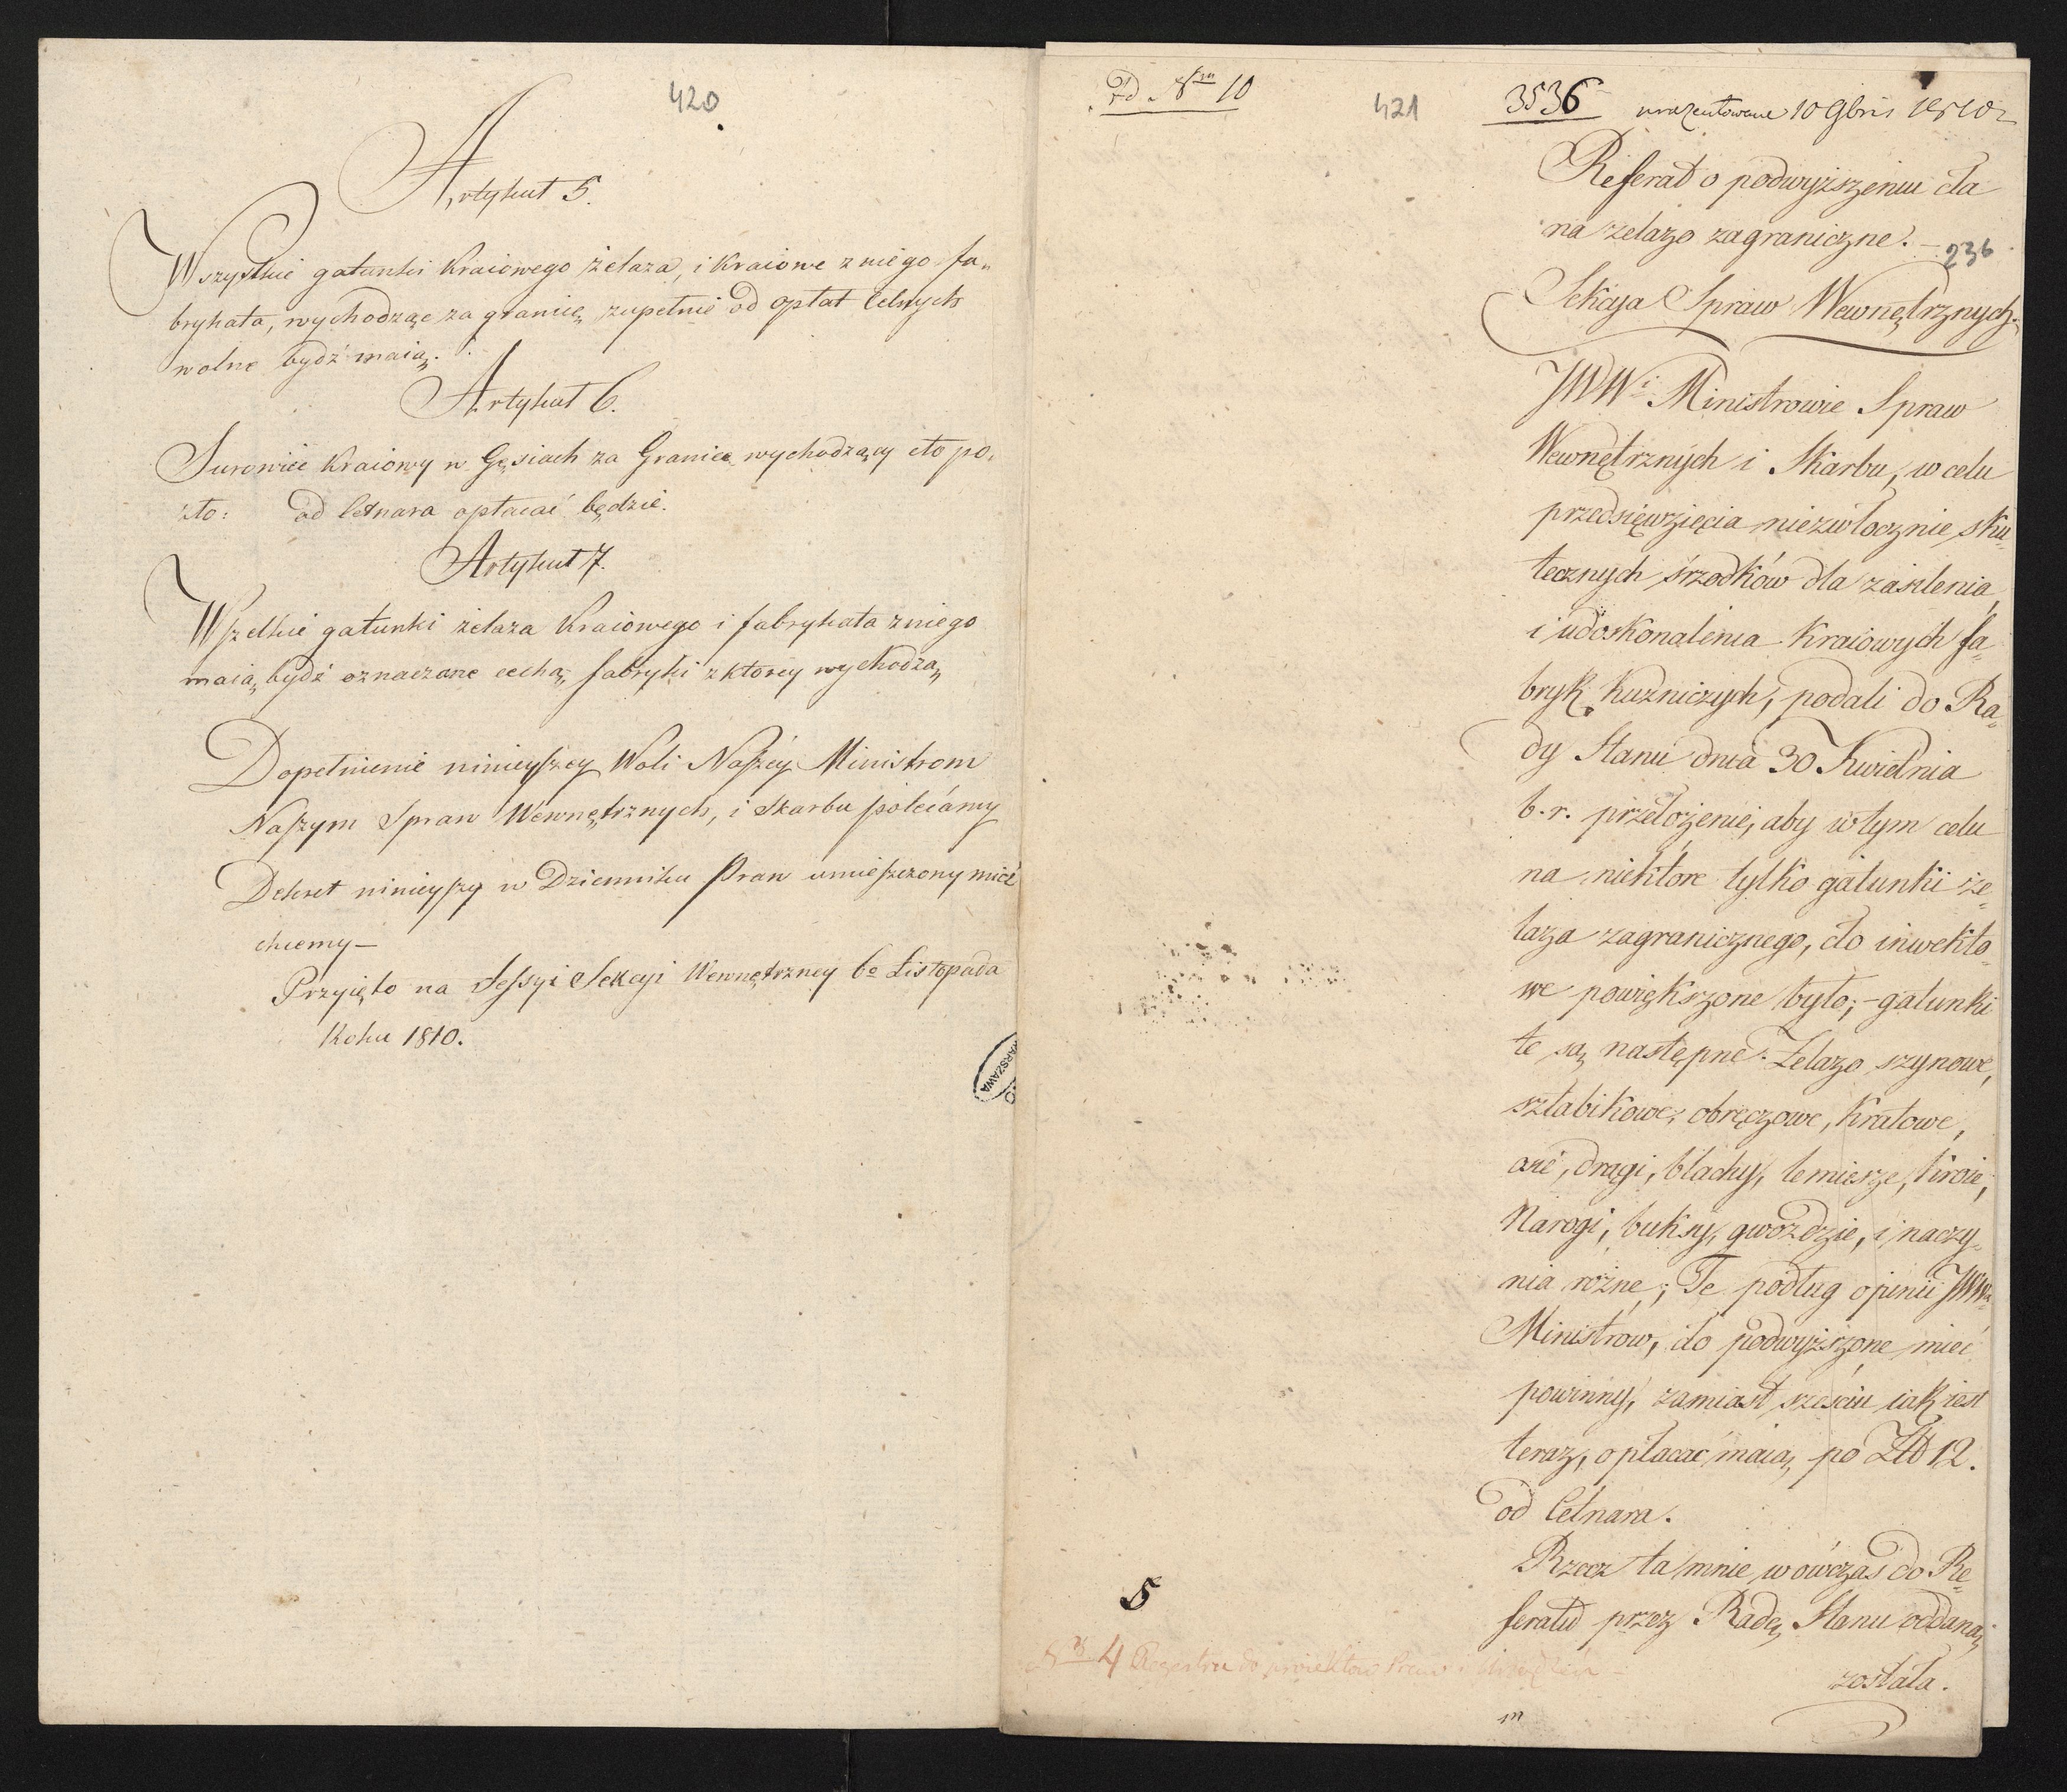 420
Artykuł 5.
Wszystkie gatunki Kraiowego żelaza, i Kraiowe z niego fa„
brykata, wychodzące za granicę, zupełnie od opłat Celnych
wolne bydź maią.
Artykuł 6.
Surowiec Kraiowy w Gęsiach za Granicę wychodzący cło po„
zło: od Cetnara opłacać będzie.
Artykuł 7.
Wszelkie gatunki żelaza Kraiowego i fabrykata z niego
maią bydź oznaczone cechą fabryki z ktorey wychodzą
Dopełnienie ninieyszey Woli Naszéy Ministrom
Naszym Spraw Wewnętrznych, i Skarbu polećamy
Dekret ninieyszy w Dzienniku Praw umieszczony mieć
chcemy —
Przyięto na Sessyi Sekcyi Wewnętrzney 6o Listopada
Roku 1810.
WARSZAWA
Ad Nrm 10
421
3536 prezentowane 10 9bris 1810 r
Referat o podwyższeniu cła
na żelazo zagraniczne. —
236
Sekcya Spraw Wewnętrznych.
JWWi Ministrowie Spraw
Wewnętrznych i Skarbu, w celu
przedsięwzięcia niezwłocznie sku=
tecznych śrzodków dla zasilenia
i udoskonalenia Kraiowych fa=
bryk kuźniczych, podali do Ra=
dy Stanu dnia 30 Kwietnia
b. r. przełożenie, aby w tym celu
na niektóre tylko gatunki że=
laza zagranicznego, cło inwekto=
we powiększone było; – gatunki
te są następne. Żelazo szynowe,
sztabikowe, obręczowe, Kratowe,
osie, drągi, blachy, lemiesze, kroie,
Narogi, buksy, gwoździe, i naczy=
nia rożne; Te podług opinii JWWch
Ministrow, cło podwyższone mieć
powinny, zamiast sześciu iak iest
teraz, opłacać maią po Złł 12.
od Cetnara.
Rzecz ta mnie wówczas do Re=
feratu przez Radę Stanu oddaną
została.
5
No 4 Regestru do proiektow Praw i Urządzeń —
m